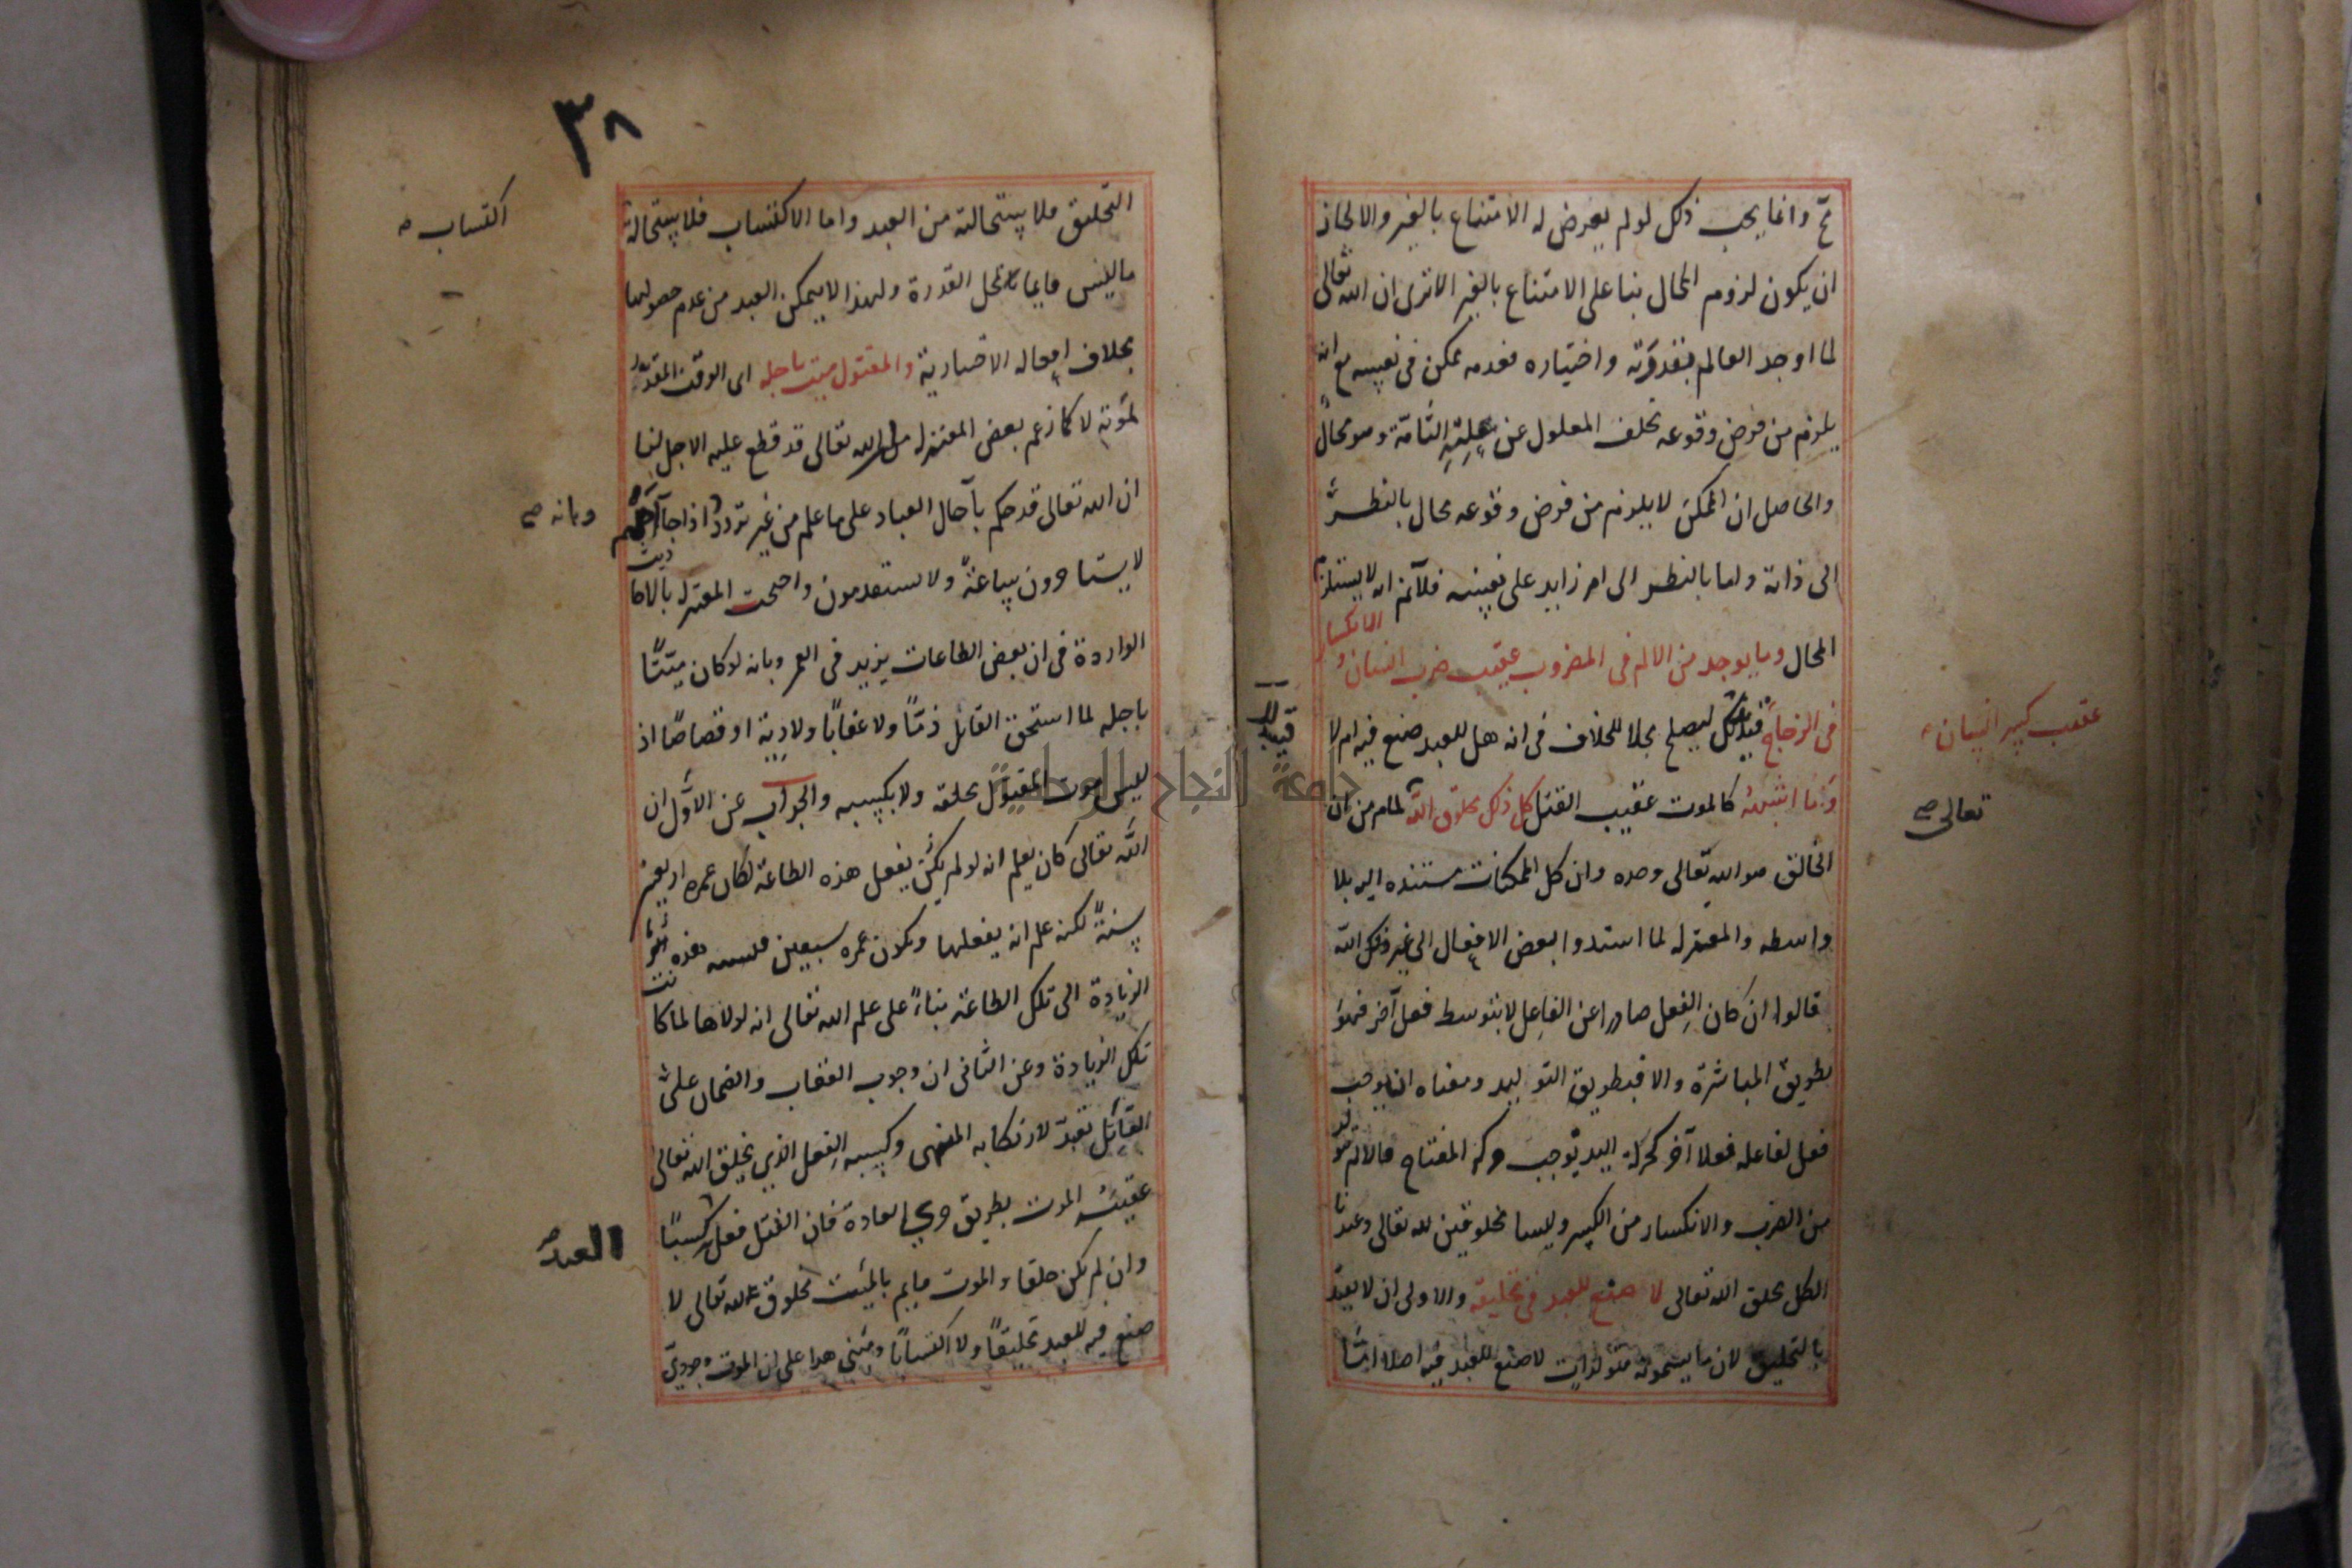 مح وانما يجب ذلك لو لم يعرض له الامتناع بالغير والا لجاز
ان يكون لزوم المحال بنا على الامتناع بالغير الا ترى ان الله تعالى
لما اوجد العالم بقدرته واختياره فعدمه ممكن في نفسه مع انه
يلزم من فرض وقوعه تخلف المعلول عن علته التامة وهو محال
والحاصل ان الممكن لا يلزم من فرض وقوعه محال بالنظر
الى ذاته واما بالنظر الى امر زايد على نفسه فلا نم انه لا يستلزم
المحال وما يوجد من الالم في المضروب عقيب ضرب انسان والانكسار
في الزجاج قيد بذلك ليصلح محلا للخلاف في انه هل للعبد صنع فيه ام لا
عقيب كسر انسان
وما اشبهه كالموت عقيب القتل كل ذلك مخلوق الله لما مر من ان
تعالى صح
الخالق هو الله تعالى وحده وان كل الممكنات مستنده اليه بلا
واسطه والمعتزله لما اسندوا بعض الافعال الى غير ذلك الله
قالوا ان كان الفعل صادرا عن الفاعل لا بتوسط فعل آخر فهو
بطريق المباشرة والا فبطريق التوليد ومعناه ان يوجب
فعل لفاعله فعلا آخر كحركة اليد توجب حركة المفتاح فالالم متولد
من الضرب والانكسار من الكسر وليسا مخلوقين لله تعالى وعندنا
الكل بخلق الله تعالى لا صنع للعبد في تخليقه والاولى ان لا يقيد
بالتخليق لان ما يسمونه متولدات لا صنع للعبد فيه اصلا اما
٣٨
التخليق فلاستحالته من العبد واما الاكتساب فلاستحالة
اكتساب صح
ما ليس قايما بمحل القدرة ولهذا لا يتمكن العبد من عدم حصولها
بخلاف افعاله الاختيارية والمقتول ميت باجله اى الوقت المقدر
لموته لا كما زعم بعض المعتزله من ان الله تعالى قد قطع عليه الاجل لنا
ان الله تعالى قد حكم بآجال العباد على ما علم من غير تردد اذا جآ اجلهم
وبانه صح
لا يستاخرون ساعة ولا يستقدمون واحتجت المعتزله بالاحاديث
الواردة في ان بعض الطاعات يزيد في العمر وبانه لو كان ميتا
باجله لما استحق القاتل ذما ولا عقابا ولا دية او قصاصا اذ
ليس موت المقتول بخلقه ولا بكسبه والجواب عن الاول ان
الله تعالى كان يعلم انه لو لم يكن يفعل هذه الطاعة لكان عمره اربعين
سنة لكنه علم انه يفعلها ويكون عمره سبعين فنسبه هذه
الزيادة الى تلك الطاعة بناء على علم الله تعالى انه لولاها لما كانت
تلك الزيادة وعن الثانى ان وجوب العقاب والضمان على
القاتل تعبد لارتكابه المنهى وكسبه الفعل الذي يخلق الله تعالى
عقيبه الموت بطريق جري العادة فان القتل فعل كسبا
العبد صح
وان لم يكن خلقا والموت قايم بالميت مخلوق لله تعالى لا
صنع فيه للعبد تخليقا ولا اكتسابا ومبنى هذا على ان الموت وجودي
جامعة النجاح الوطنية